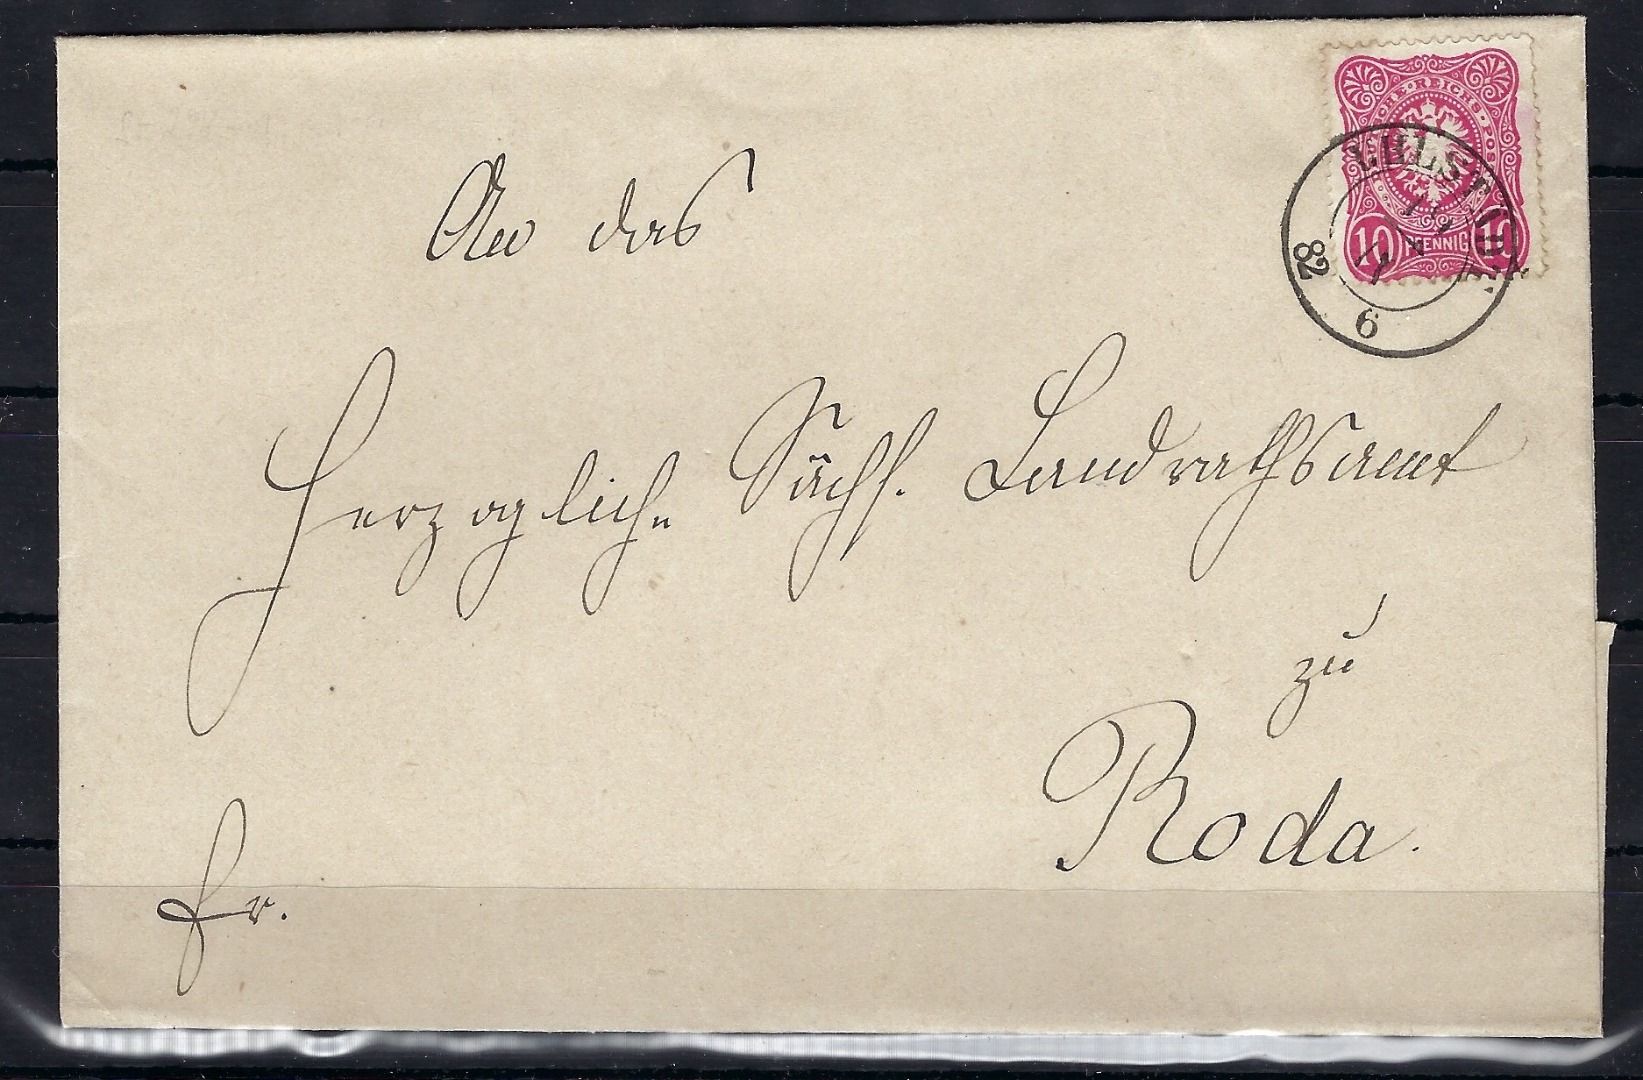 DEUTSCHE·REICHS·POST
10 PFENNIG 10
82
6
An das
Herzoglich Sächs. Landrathsamt
zu
Roda.
fr.